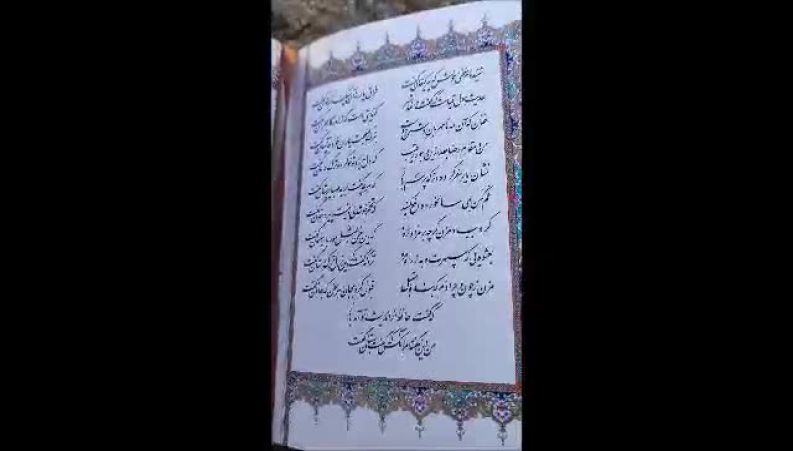 شنیده‌ام سخنی خوش که پیر کنعان گفت فراق یار نه آن می‌کند که بتوان گفت
حدیث هول قیامت که گفت واعظ شهر کنایتیست که از روزگار هجران گفت
فغان که آن مه نامهربان دشمن دوست بترک صحبت یاران خود چه آسان گفت
من و مقام رضا بعد ازین و شکر رقیب که دل بدرد تو خو کرد و ترک درمان گفت
نشان یار سفر کرده از که پرسم باز که هر چه گفت برید صبا پریشان گفت
غم کهن بمی سالخورده دفع کنید که تخم خوشدلی اینست پیر دهقان گفت
گره بباد مزن گرچه بر مراد رود که این سخن بمثل باد با سلیمان گفت
بعشوه‌ای که سپهرت دهد ز راه مرو ترا که گفت که این زال ترک دستان گفت
مزن ز چون و چرا دم که بنده مقبل قبول کرد بجان هر سخن که جانان گفت
که گفت حافظ از اندیشه تو آمد باز
من این نگفته‌ام آنکس که گفت بهتان گفت